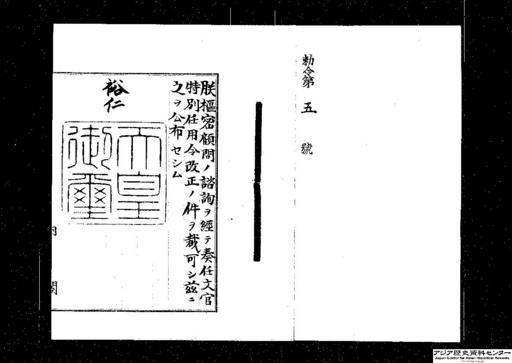 勅令第五號
朕樞密顧問ノ諮詢ヲ經テ奏任文官
特別任用令改正ノ件ヲ裁可シ茲ニ
之ヲ公布セシム
裕仁
天皇御璽
内閣
アジア歴史資料センター
Japan Center for Asian Historical Records